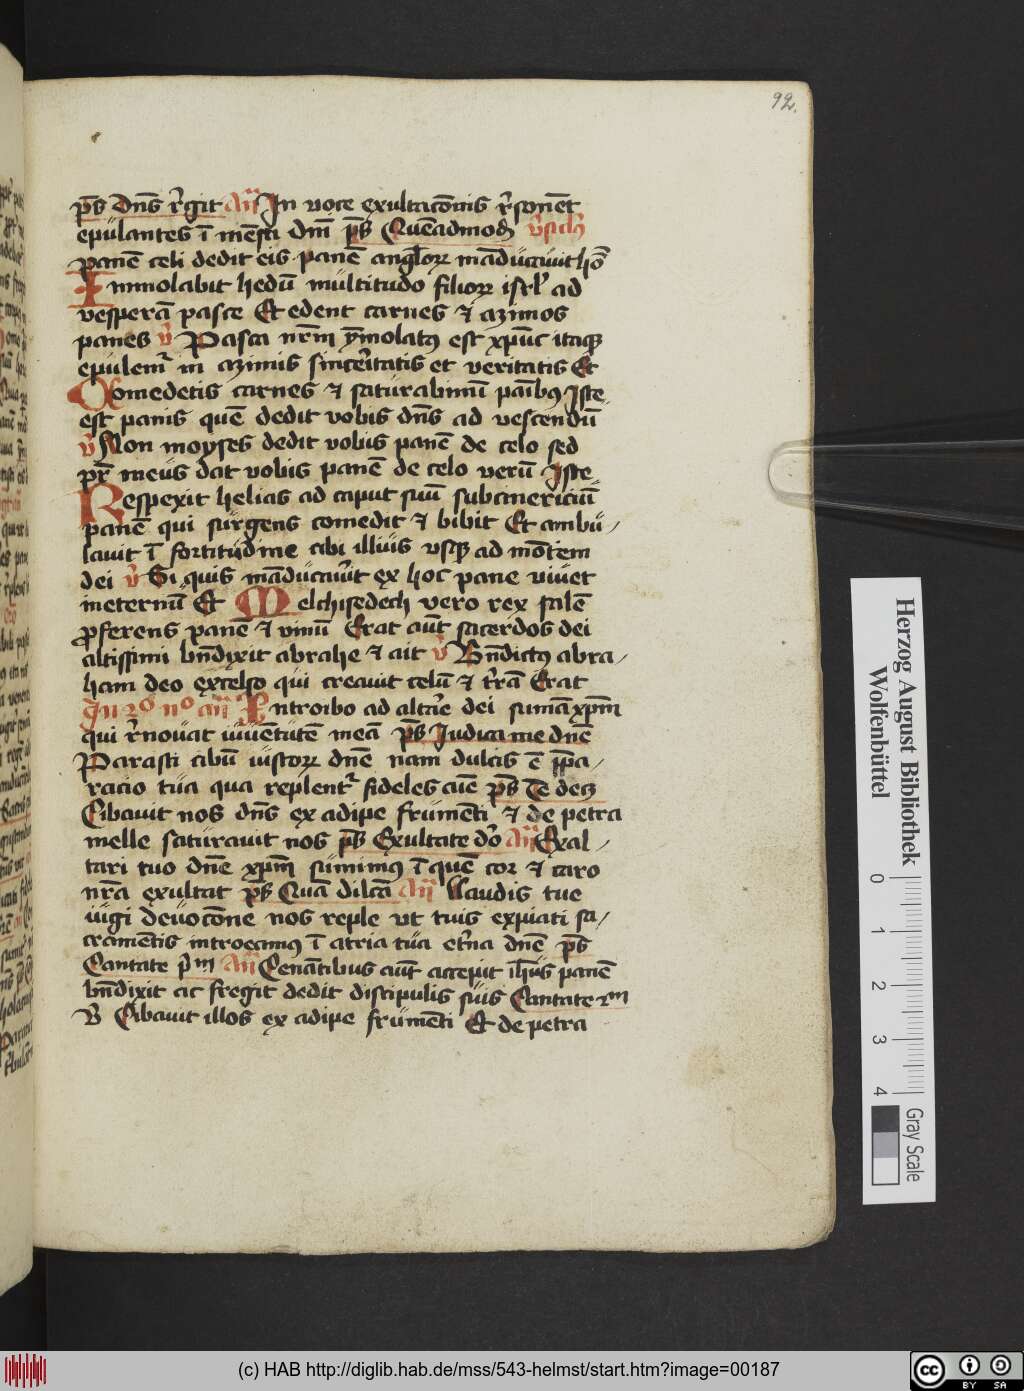 92.
p̄s dn̄s r̄git an̄ In voce exultac̄onis r̄sonēt
epulantes ī mēsa dn̄i p̄s Quēadmod v̄siclꝰ
panē celi dedit eis panē angl̄oꝝ māducauit hō
Immolabit hedū multitudo filioꝝ isrl̄ ad
vesperā pasce Et edent carnes ⁊ azimos
panes v̄ Pasca nr̄m ymolatꝰ est xp̄uc itaqꝫ
epulemr̄ in azimis sincēitatis et veritatis Et
Comedetis carnes ⁊ saturabimī pāibꝰ Iste
est panis quē dedit vobis dn̄s ad vescendū
v̄ Non moyses dedit vobis panē de celo sed
pr̄ meus dat vobis panē de celo verū Iste
Respexit helias ad caput suū subcinericiū
panē qui surgens comedit ⁊ bibit Et ambu/
lauit ī fortitudine cibi illius vsqꝫ ad mōtem
dei v̄ Si quis māducauīt ex hoc pane viuet
ineternū Et Melchisedech vero rex salē
ꝓferens panē ⁊ vinū Erat aūt sacerdos dei
altissimi bn̄dixit abrahe ⁊ ait v̄ Bn̄dictꝰ abra/
ham deo excelso qui creauit celū ⁊ tr̄rā Erat
In 2º nº an̄ Introibo ad altāe dei sumā xp̄m
qui r̄nouat iuuētutē meā p̄s Iudica me dn̄e
Parasti cibū iustoꝝ dn̄e nam dulcis ē p̄pa/
racio tua qua replentr̄ fideles cuē p̄s Te decꝫ
Cibauit nos dn̄s ex adipe frumēti ⁊ de petra
melle saturauit nos p̄s Exultate dō an̄ Exal/
tari tuo dn̄e xp̄m sumimꝰ ī quē cor ⁊ caro
nr̄a exultat p̄s Quā dilc̄a an̄ Laudis tue
iugi deuoc̄one nos reple vt tuis expiati sa/
cramētis introeamꝰ ī atria tua et̄na dn̄e p̄s
Cantate p̄m an̄ Cenātibus aūt accepit ih̄us panē
bn̄dixit ac fregit dedit discipulis suis Cantate 2m
V̄ Cibauit illos ex adipe frumēti Et de petra
Herzog August Bibliothek
Wolfenbüttel
0
1
2
3
4
Gray Scale
(c) HAB http://diglib.hab.de/mss/543-helmst/start.htm?image=00187
cc BY SA